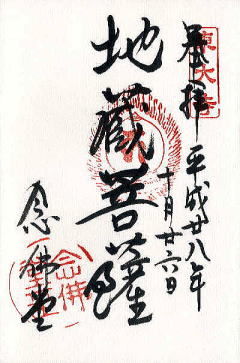 奉拝
東大寺
平成廿八年
十月廿六日
地蔵菩薩
念佛堂